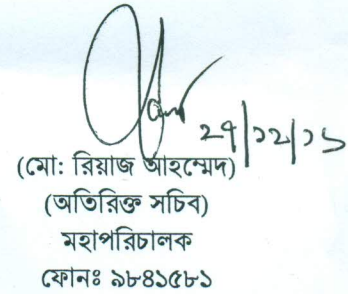 ২৭|১২|১৬
(মো: রিয়াজ আহম্মেদ)
(অতিরিক্ত সচিব)
মহাপরিচালক
ফোনঃ ৯৮৪১৫৮১